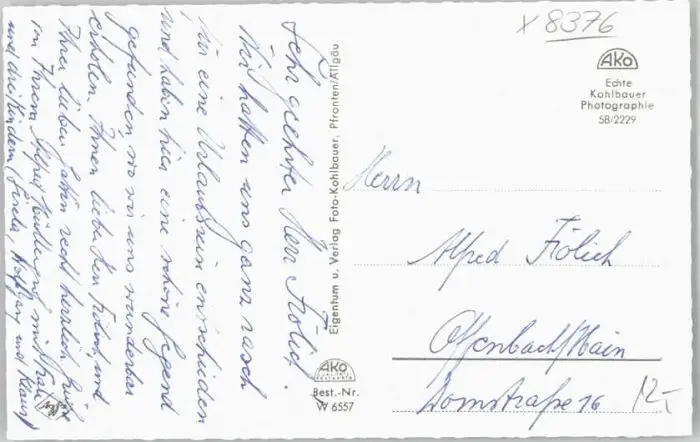 Sehr geehrter Herr Frölich!
Wir hatten uns ganz rasch
für eine Urlaubsreise entschieden
und haben hier eine schöne Gegend
gefunden, wo wir uns wunderbar
erholen. Ihnen, lieber Herr Frölich, und
Ihrer lieben Gattin recht herzliche Grüße
von Ihrem mit Frau
und drei Kindern (Gisela, Wolfgang und Klaus)
Eigentum u. Verlag Foto-Kohlbauer, Pfronten/Allgäu
AKO
Best.-Nr.
W 6557
x 8376
AKO
Echte
Kohlbauer
Photographie
5B/2229
Herrn
Alfred Frölich
Offenbach/Main
Domstraße 76
12,-